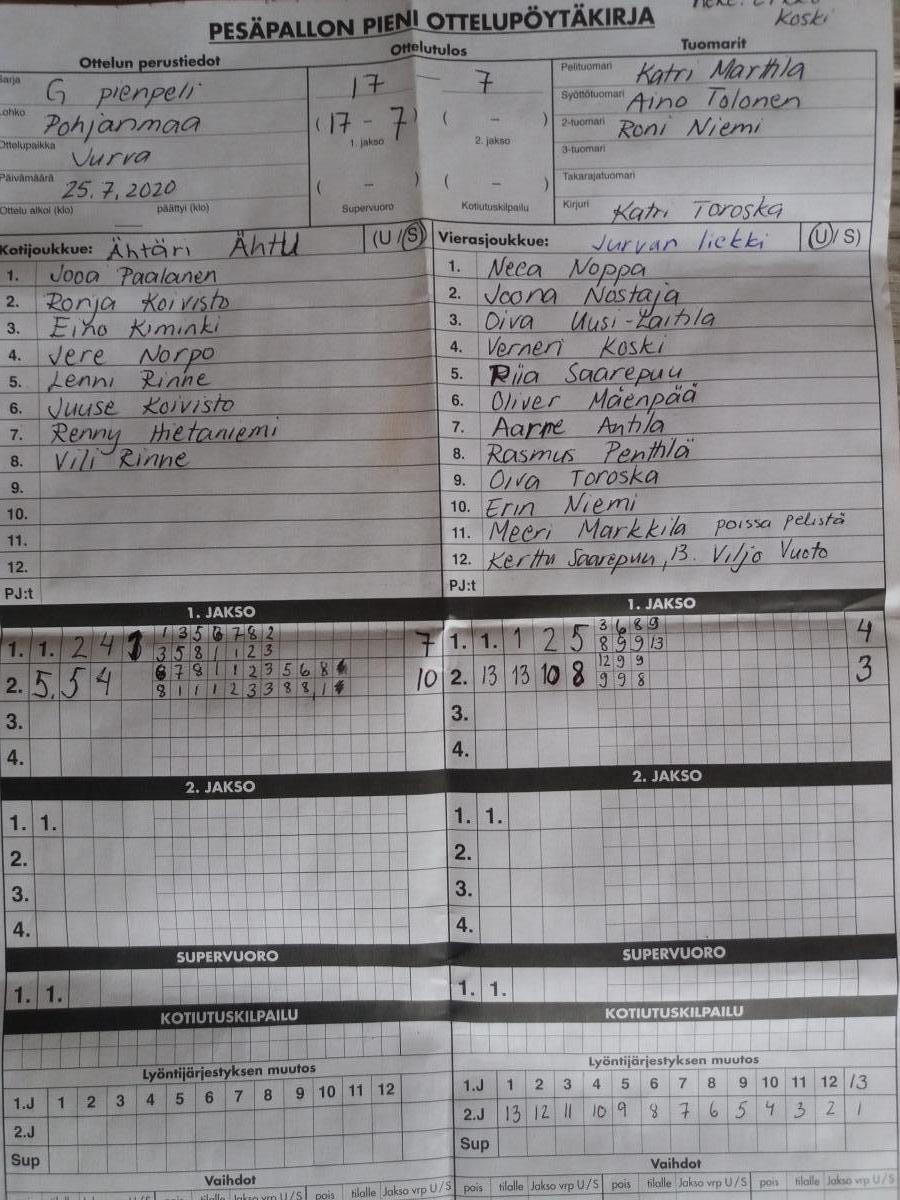 Koski
PESÄPALLON PIENI OTTELUPÖYTÄKIRJA
Ottelun perustiedot Ottelutulos Tuomarit
Sarja G pienpeli
Lohko Pohjanmaa
Ottelupaikka Jurva
Päivämäärä 25.7.2020
Ottelu alkoi (klo) päättyi (klo)
17 — 7
(17 - 7) ( - )
1. jakso 2. jakso
( - ) ( - )
Supervuoro Kotiutuskilpailu
Pelituomari Katri Marttila
Syöttötuomari Aino Tolonen
2-tuomari Roni Niemi
3-tuomari
Takarajatuomari
Kirjuri Katri Toroska
Kotijoukkue: Ähtäri ÄhtU (U/S)
1. Jooa Paalanen
2. Ronja Koivisto
3. Eino Kiminki
4. Jere Norpo
5. Lenni Rinne
6. Juuse Koivisto
7. Renny Hietaniemi
8. Vili Rinne
9.
10.
11.
12.
PJ:t
Vierasjoukkue: Jurvan liekki (U/S)
1. Neea Noppa
2. Joona Nostaja
3. Oiva Uusi-Laitila
4. Verneri Koski
5. Riia Saarepuu
6. Oliver Mäenpää
7. Aarne Antila
8. Rasmus Penttilä
9. Oiva Toroska
10. Erin Niemi
11. Meeri Markkila poissa pelistä
12. Kerttu Saarepuu, 13. Viljo Vuoto
PJ:t
1. JAKSO
1 3 5 6 7 8 2
1. 1. 2 4 1 7
3 5 8 1 1 2 3
7 8 1 1 2 3 5 6 8
2. 5. 5 4 10
8 1 1 1 2 3 3 8 8 1
3.
4.
1. JAKSO
3 6 8 9
1. 1. 1 2 5 4
8 9 9 13
12 9 9
2. 13 13 10 8 3
9 9 8
3.
4.
2. JAKSO
1. 1.
2.
3.
4.
2. JAKSO
1. 1.
2.
3.
4.
SUPERVUORO
1. 1.
SUPERVUORO
1. 1.
KOTIUTUSKILPAILU
KOTIUTUSKILPAILU
Lyöntijärjestyksen muutos
1.J 1 2 3 4 5 6 7 8 9 10 11 12
2.J
Sup
Vaihdot
pois tilalle Jakso vrp U/S
Lyöntijärjestyksen muutos
1.J 1 2 3 4 5 6 7 8 9 10 11 12 13
2.J 13 12 11 10 9 8 7 6 5 4 3 2 1
Sup
Vaihdot
pois tilalle Jakso vrp U/S pois tilalle Jakso vrp U/S pois tilalle Jakso vrp U/S